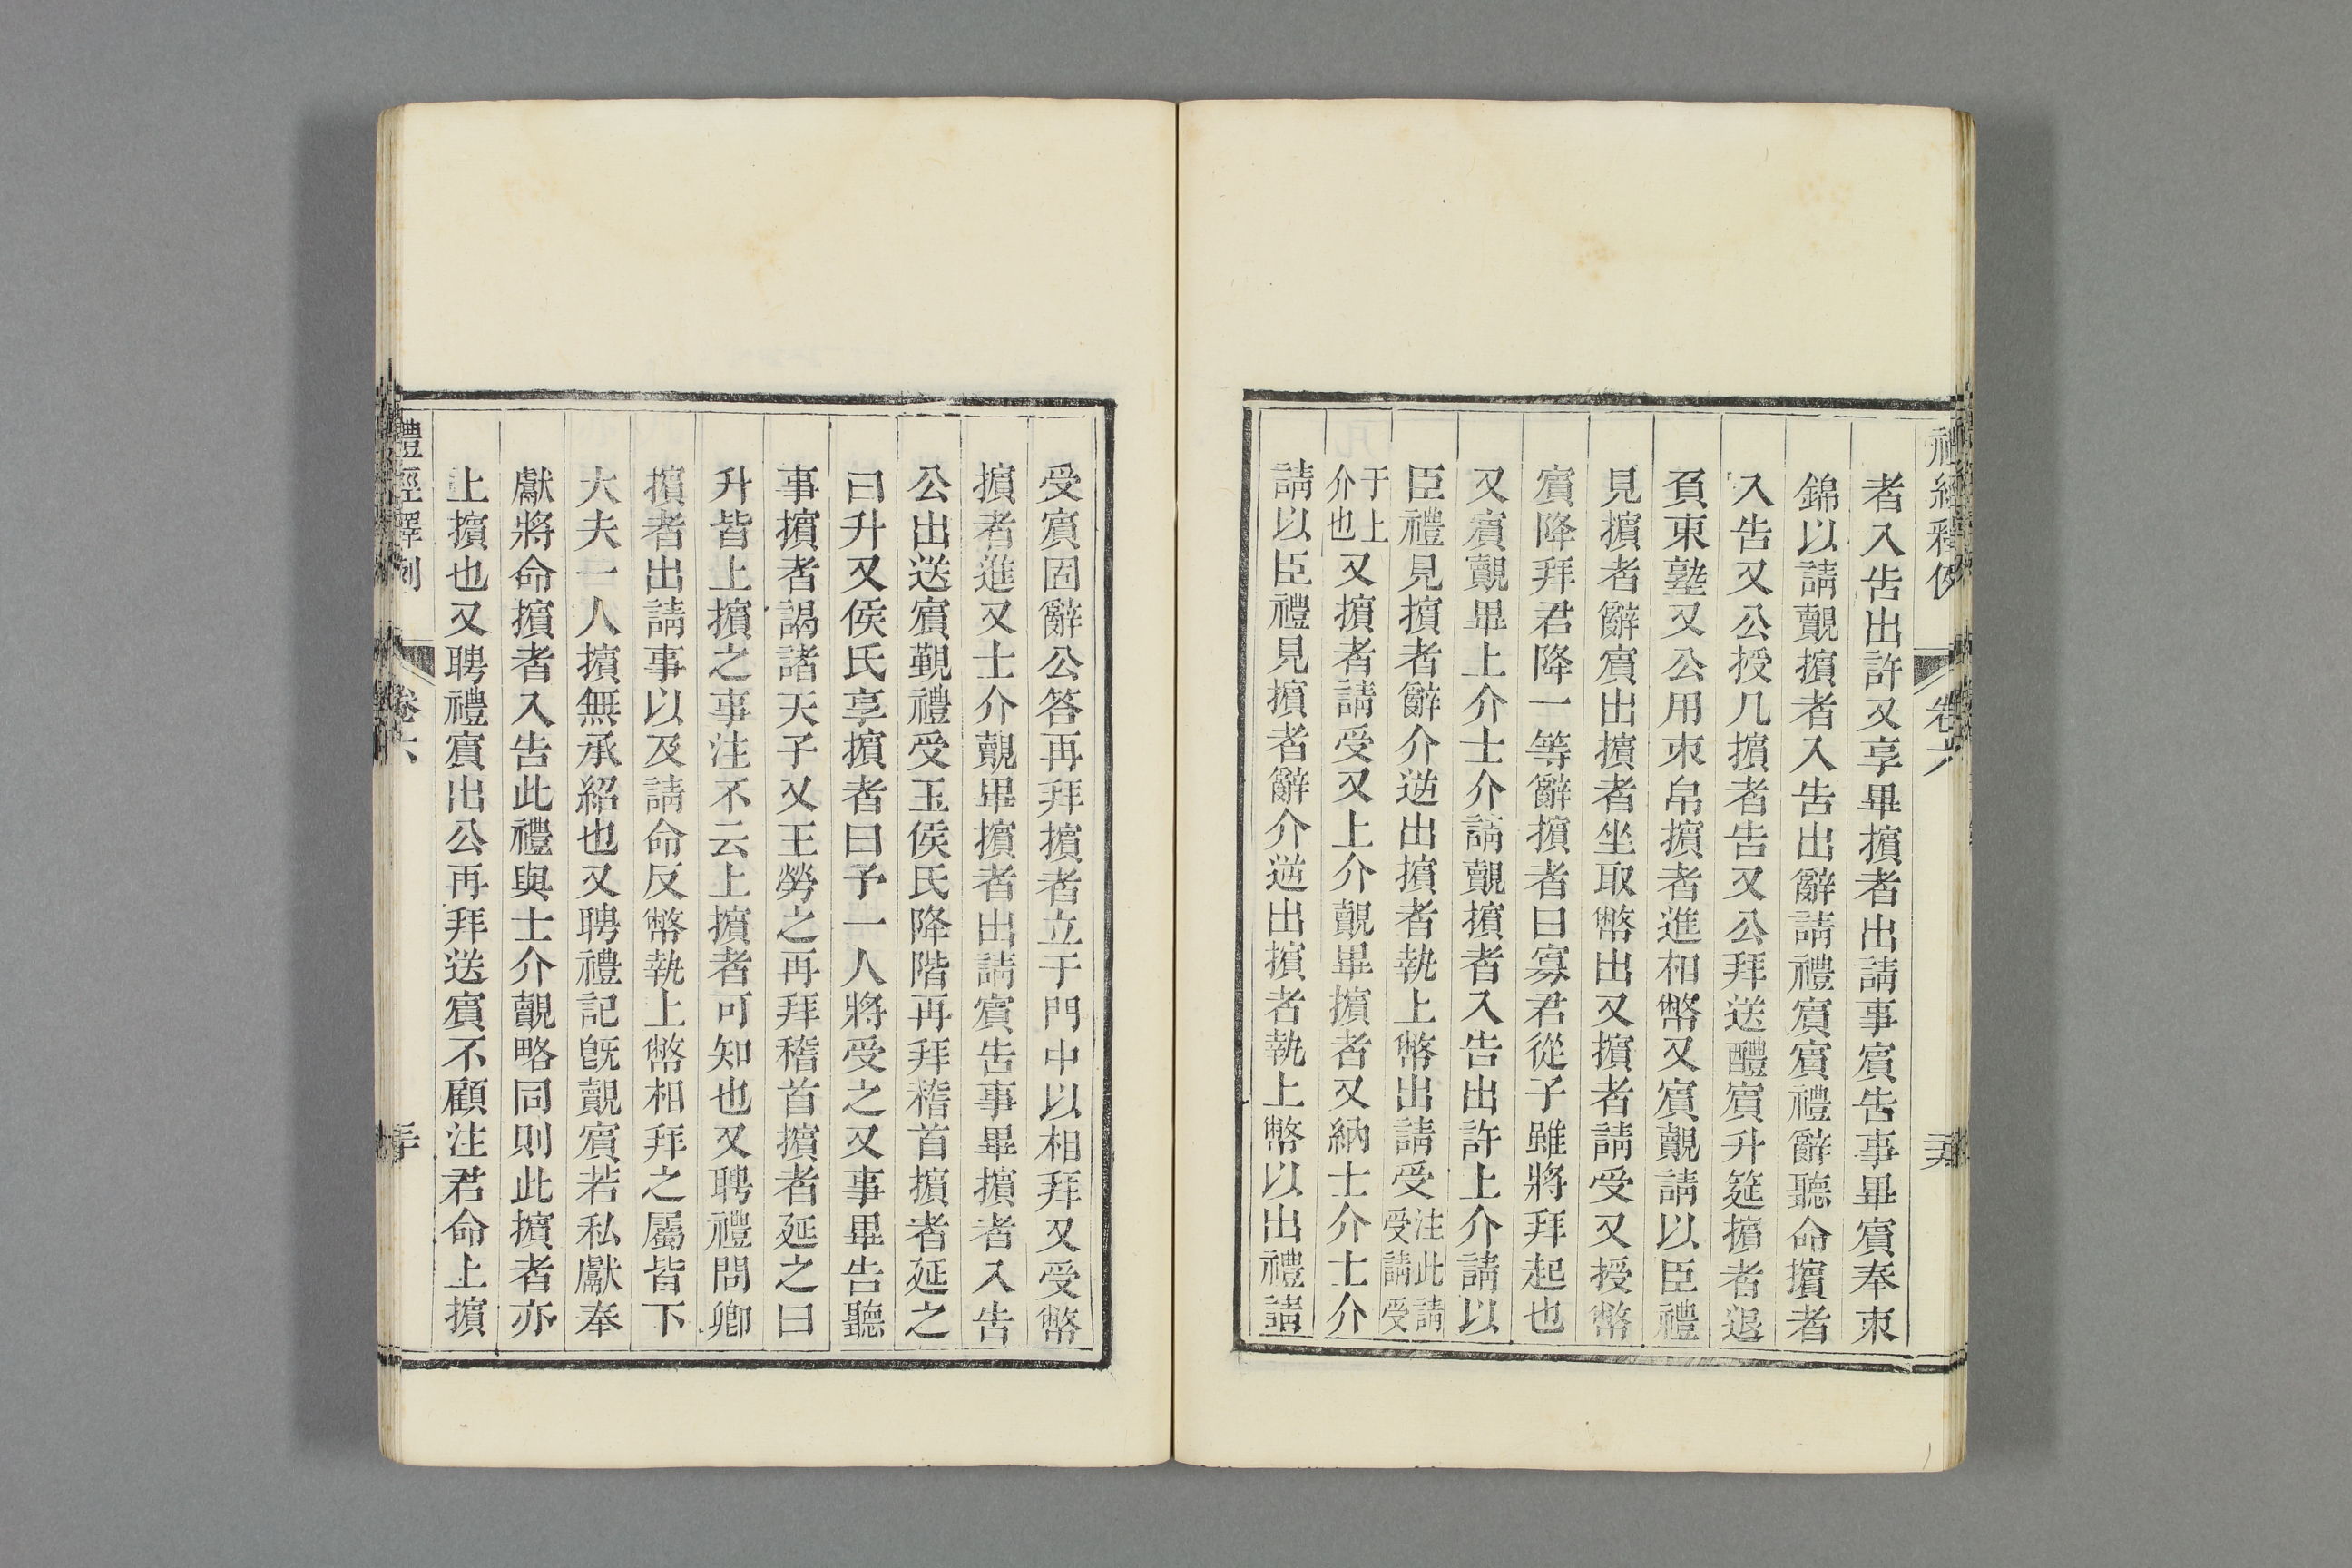 禮經釋例
卷六
者入告出許又享畢擯者出請事賓告事畢賓奉束
錦以請覿擯者入告出辭請禮賓賓禮辭聽命擯者
入告又公授几擯者告又公拜送醴賓升筵擯者退
負東塾又公用束帛擯者進相幣又賓覿請以臣禮
見擯者辭賓出擯者坐取幣出又擯者請受又授幣
賓降拜君降一等辭擯者曰寡君從子雖將拜起也
又賓覿畢上介士介請覿擯者入告出許上介請以
臣禮見擯者辭介逆出擯者執上幣出請受注此請受請受
于上介也又擯者請受又上介覿畢擯者又納士介士介
請以臣禮見擯者辭介逆出擯者執上幣以出禮請
受賓固辭公答再拜擯者立于門中以相拜又受幣
擯者進又士介覿畢擯者出請賓告事畢擯者入告
公出送賓覲禮受玉侯氏降階再拜稽首擯者延之
曰升又侯氏享擯者曰予一人將受之又事畢告聽
事擯者謁諸天子又王勞之再拜稽首擯者延之曰
升皆上擯之事注不云上擯者可知也又聘禮問卿
擯者出請事以及請命反幣執上幣相拜之屬皆下
大夫一人擯無承紹也又聘禮記旣覿賓若私獻奉
獻將命擯者入告此禮與士介覿略同則此擯者亦
上擯也又聘禮賓出公再拜送賓不顧注君命上擯
禮經釋例
卷六
三十